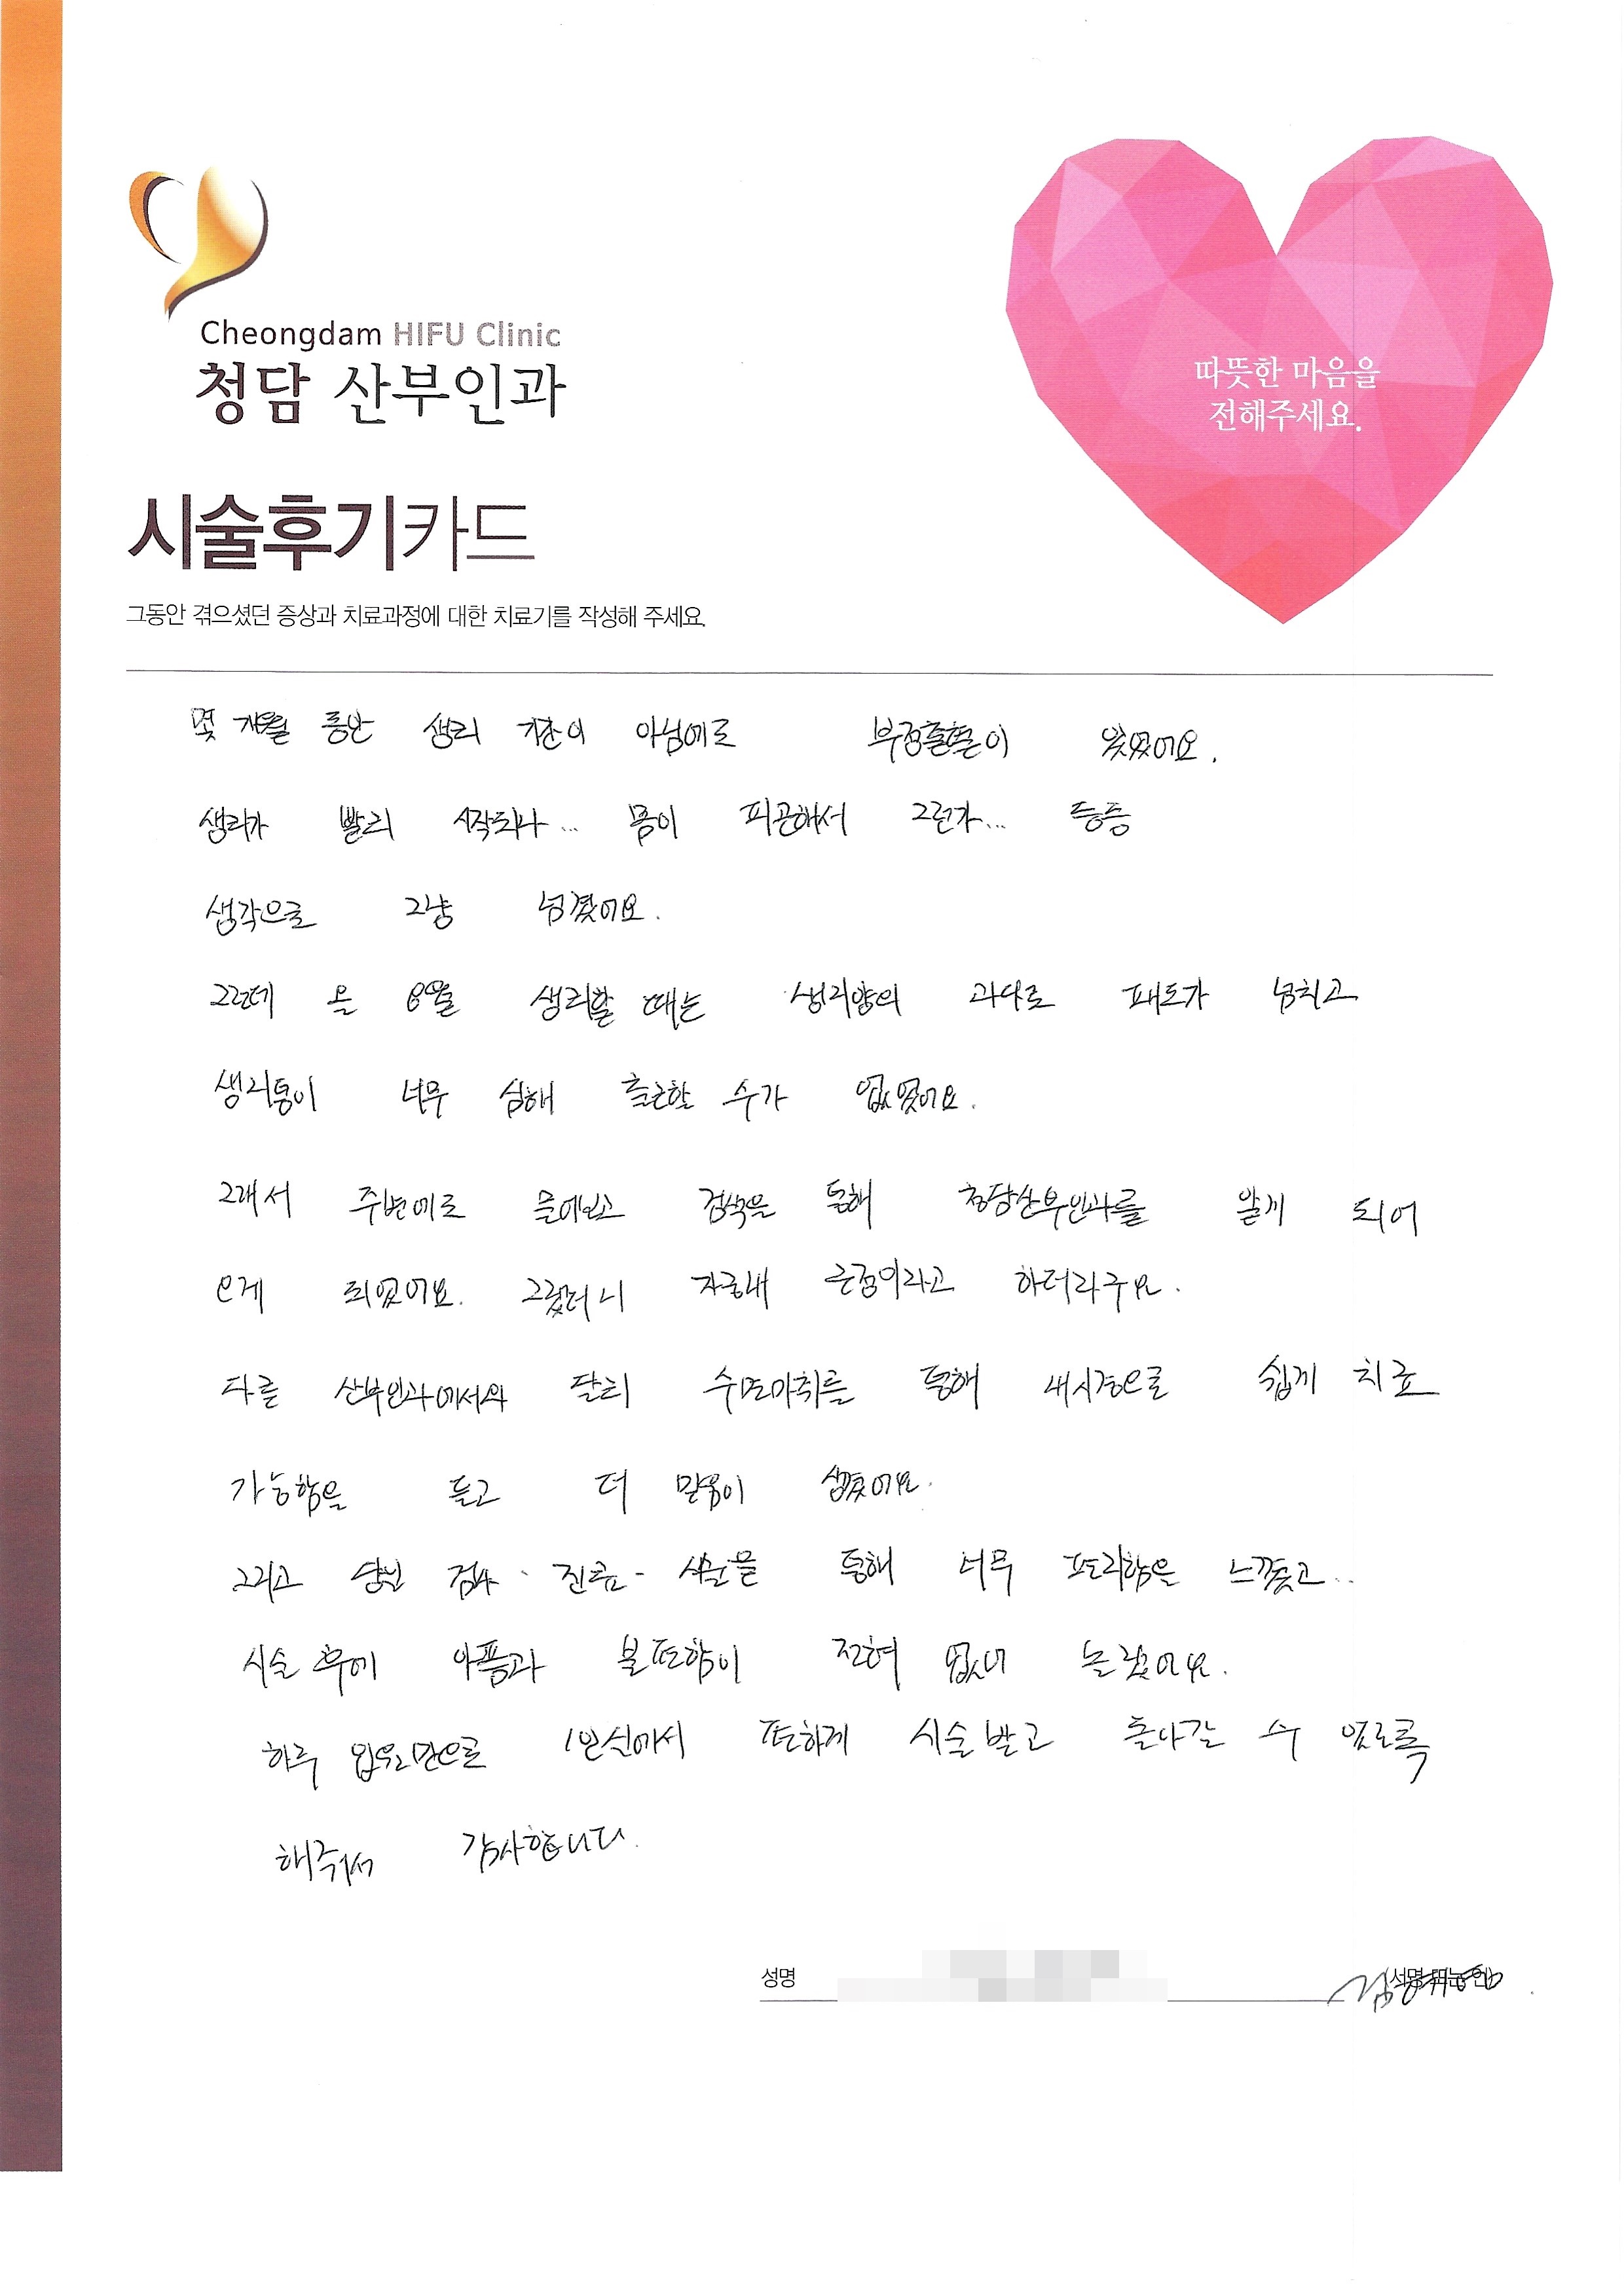 Cheongdam HIFU Clinic
청담 산부인과
따뜻한 마음을
전해주세요.
시술후기카드
그동안 겪으셨던 증상과 치료과정에 대한 치료기를 작성해 주세요.
몇 개월 동안 생리 기간이 아님에도 부정출혈이 있었어요.
생리가 빨리 시작되나... 몸이 피곤해서 그런가... 등등
생각으로 그냥 넘겼어요.
그런데 온 8월 생리할 때는 생리양의 과다로 패드가 넘치고
생리통이 너무 심해 출근할 수가 없었어요.
그래서 주변에도 물어보고 검색을 통해 청담산부인과를 알게 되어
오게 되었어요. 그랬더니 자궁내 근종이라고 하더라구요.
다른 산부인과에서와 달리 수면마취를 통해 내시경으로 쉽게 치료
가능함을 듣고 더 믿음이 생겼어요.
그리고 당일 검사·진료·시술을 통해 너무 편리함을 느꼈고..
시술 후에 아픔과 불편함이 전혀 없어 놀랐어요.
하루 입원만으로 1인실에서 편하게 시술받고 돌아갈 수 있도록
해주셔서 감사합니다.
성명
(서명 또는 인)